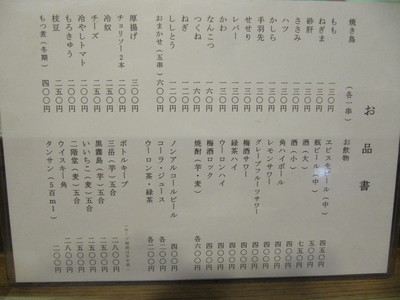 お品書
焼き鳥 (各一串)
もも 一三〇
ねぎま 一三〇
砂肝 一三〇
ささみ 一三〇
ハツ 一三〇
かしら 一三〇
手羽先 一三〇
せせり 一三〇
レバー 一三〇
かわ 一三〇
なんこつ 一六〇
つくね 一六〇
ねぎ 一三〇
ししとう 一三〇
おまかせ(五串)六〇〇
厚揚げ 三〇〇
チョリソー2本 二〇〇
冷奴 二五〇
チーズ 二五〇
冷やしトマト 二〇〇
もろきゅう 二〇〇
枝豆 二五〇
もつ煮(冬期) 四〇〇
お飲物
ヱビス生ビール(中) 四五〇
瓶ビール(中) 五〇〇
酒(大) 七五〇
酒(小)
角ハイボール 四〇〇
レモンサワー 四〇〇
グレープフルーツサワー 四〇〇
梅酒サワー 四〇〇
緑茶ハイ 四〇〇
ウーロンハイ 四〇〇
梅酒ロック 四〇〇
焼酎(芋・麦) 各六〇〇
ノンアルコールビール 四〇〇
コーラ・ジュース 各二〇〇
ウーロン茶・緑茶 各二〇〇
ボトルキープ
三岳(芋)五合 二八〇〇
黒霧島(芋)五合 二五〇〇
いいちこ(麦)五合 二五〇〇
二階堂(麦)五合 二五〇〇
ウイスキー角 二八〇〇
タンサン(5百ml) 二〇〇